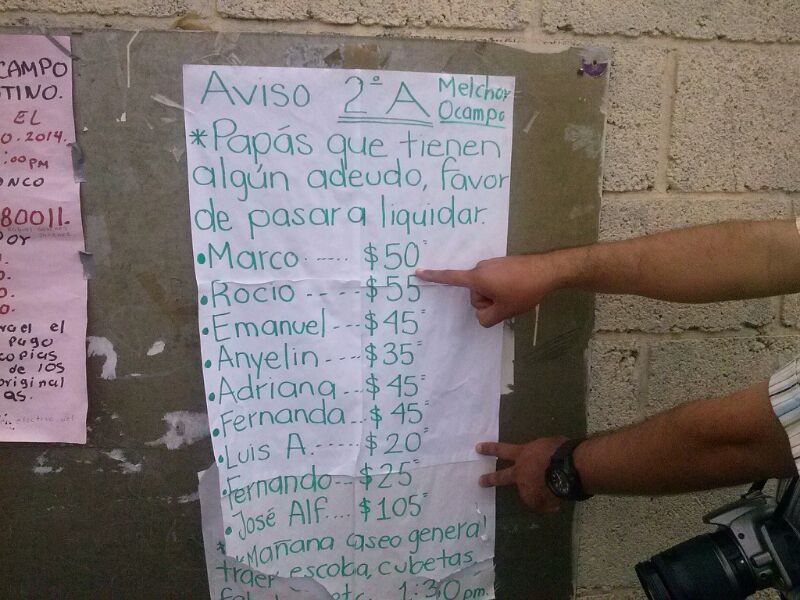 CAMPO
TINO.
EL
O. 2014.
:00 PM
ONCO
80011.
POR
rael el
Pago
copias
de los
original
as.
Aviso 2º A Melchor
Ocampo
*Papás que tienen
algún adeudo, favor
de pasar a liquidar.
•Marco ..... $50=
•Rocio ---- $55
•Emanuel --- $45=
•Anyelin ---- $35=
•Adriana --- $45=
•Fernanda .. $45=
•Luis A. ---- $20=
•Fernando --- $25=
•José Alf.... $105=
*Mañana aseo general
traer escoba, cubetas,
etc. 1:30 pm.